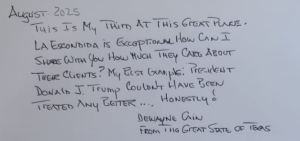 August 2025
This Is My Third At This Great Place.
La Escondida is Exceptional. How Can I
Share With You How Much They Care About
Their Clients? My Best Example: President
Donald J. Trump Couldn't Have Been
Treated Any Better .... Honestly!
Dewayne
From The Great State of Texas